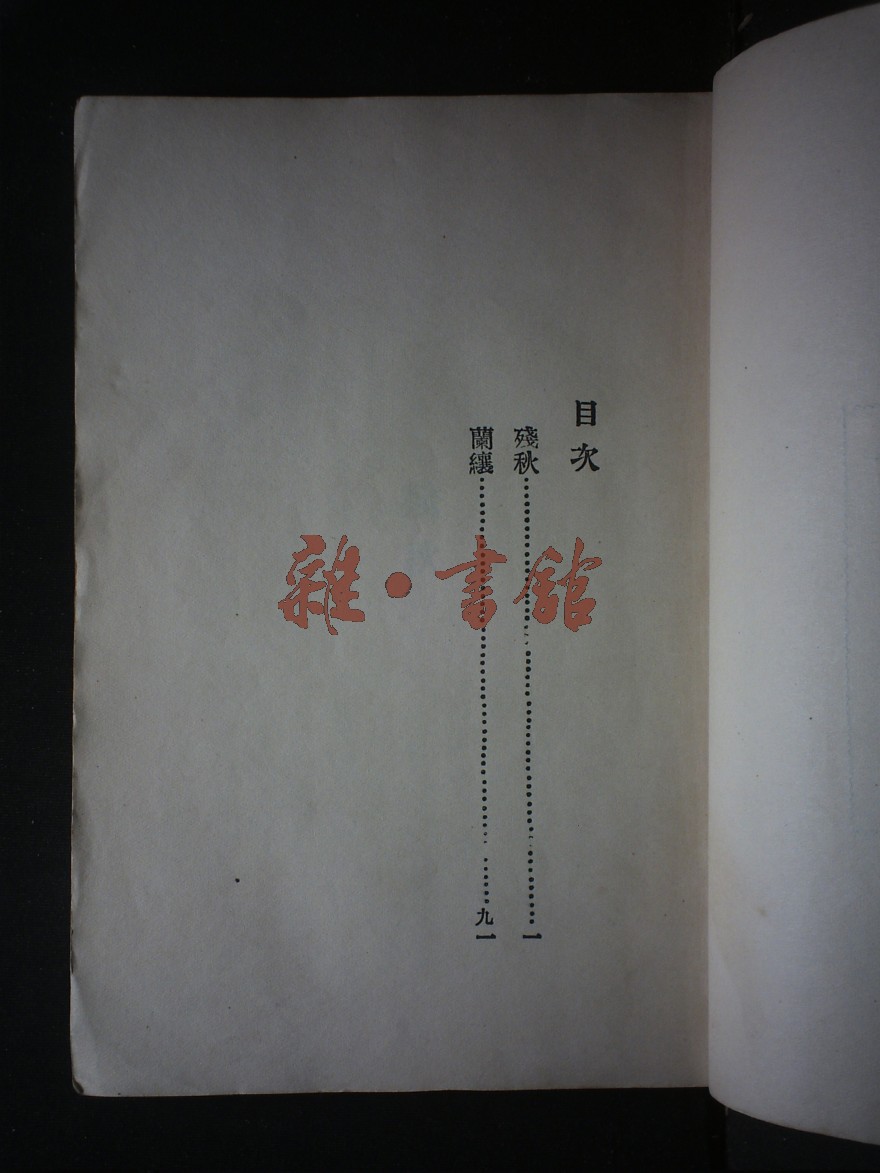 目次
殘秋……………………………一
蘭纕……………………………九一
雜・書館